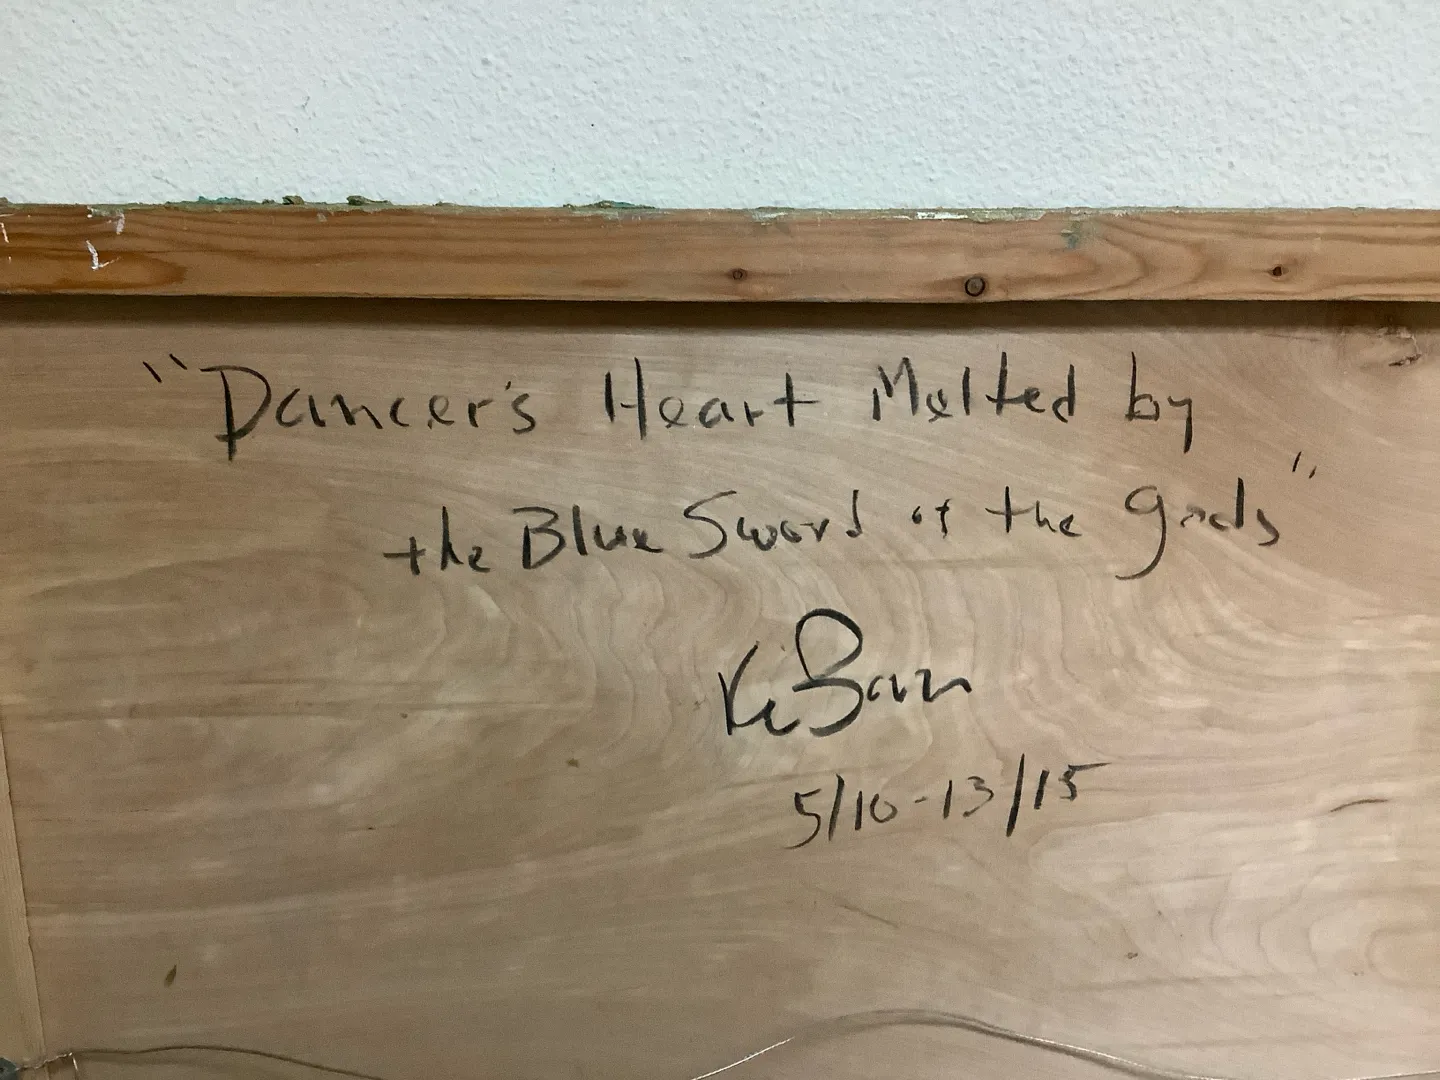 "Dancer's Heart Melted by
the Blue Sword of the gods"
5/10-13/15